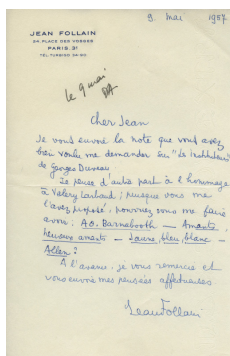 9. Mai 1957
JEAN FOLLAIN
24, PLACE DES VOSGES
PARIS. 3E
TEL. TURBIGO
le 9 mai
Cher Jean
Je vous envoie la note que vous avez
bien voulu me demander sur "Le
de Georges Duveau
Je pense d'autre part à l'hommage
à Valery Larbaud; puisque vous me
l'avez proposé, pourriez vous me faire
avoir: A.O. Barnabooth - Amants
heureux amants - Jaune, bleu, blanc -
Allen?
A l'avance, je vous remercie et
vous envoie mes pensées affectueuses
Jean Follain